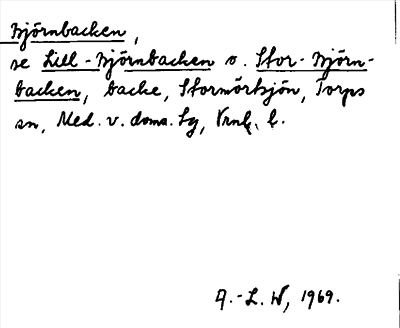 Björnbacken,
se Lill-Björnbacken o. Stor-Björn-
backen, backe, Stormörtsjön, Torps
sn, Med. v. doms. tg, Vrnl. l.
A.-L. W, 1969.